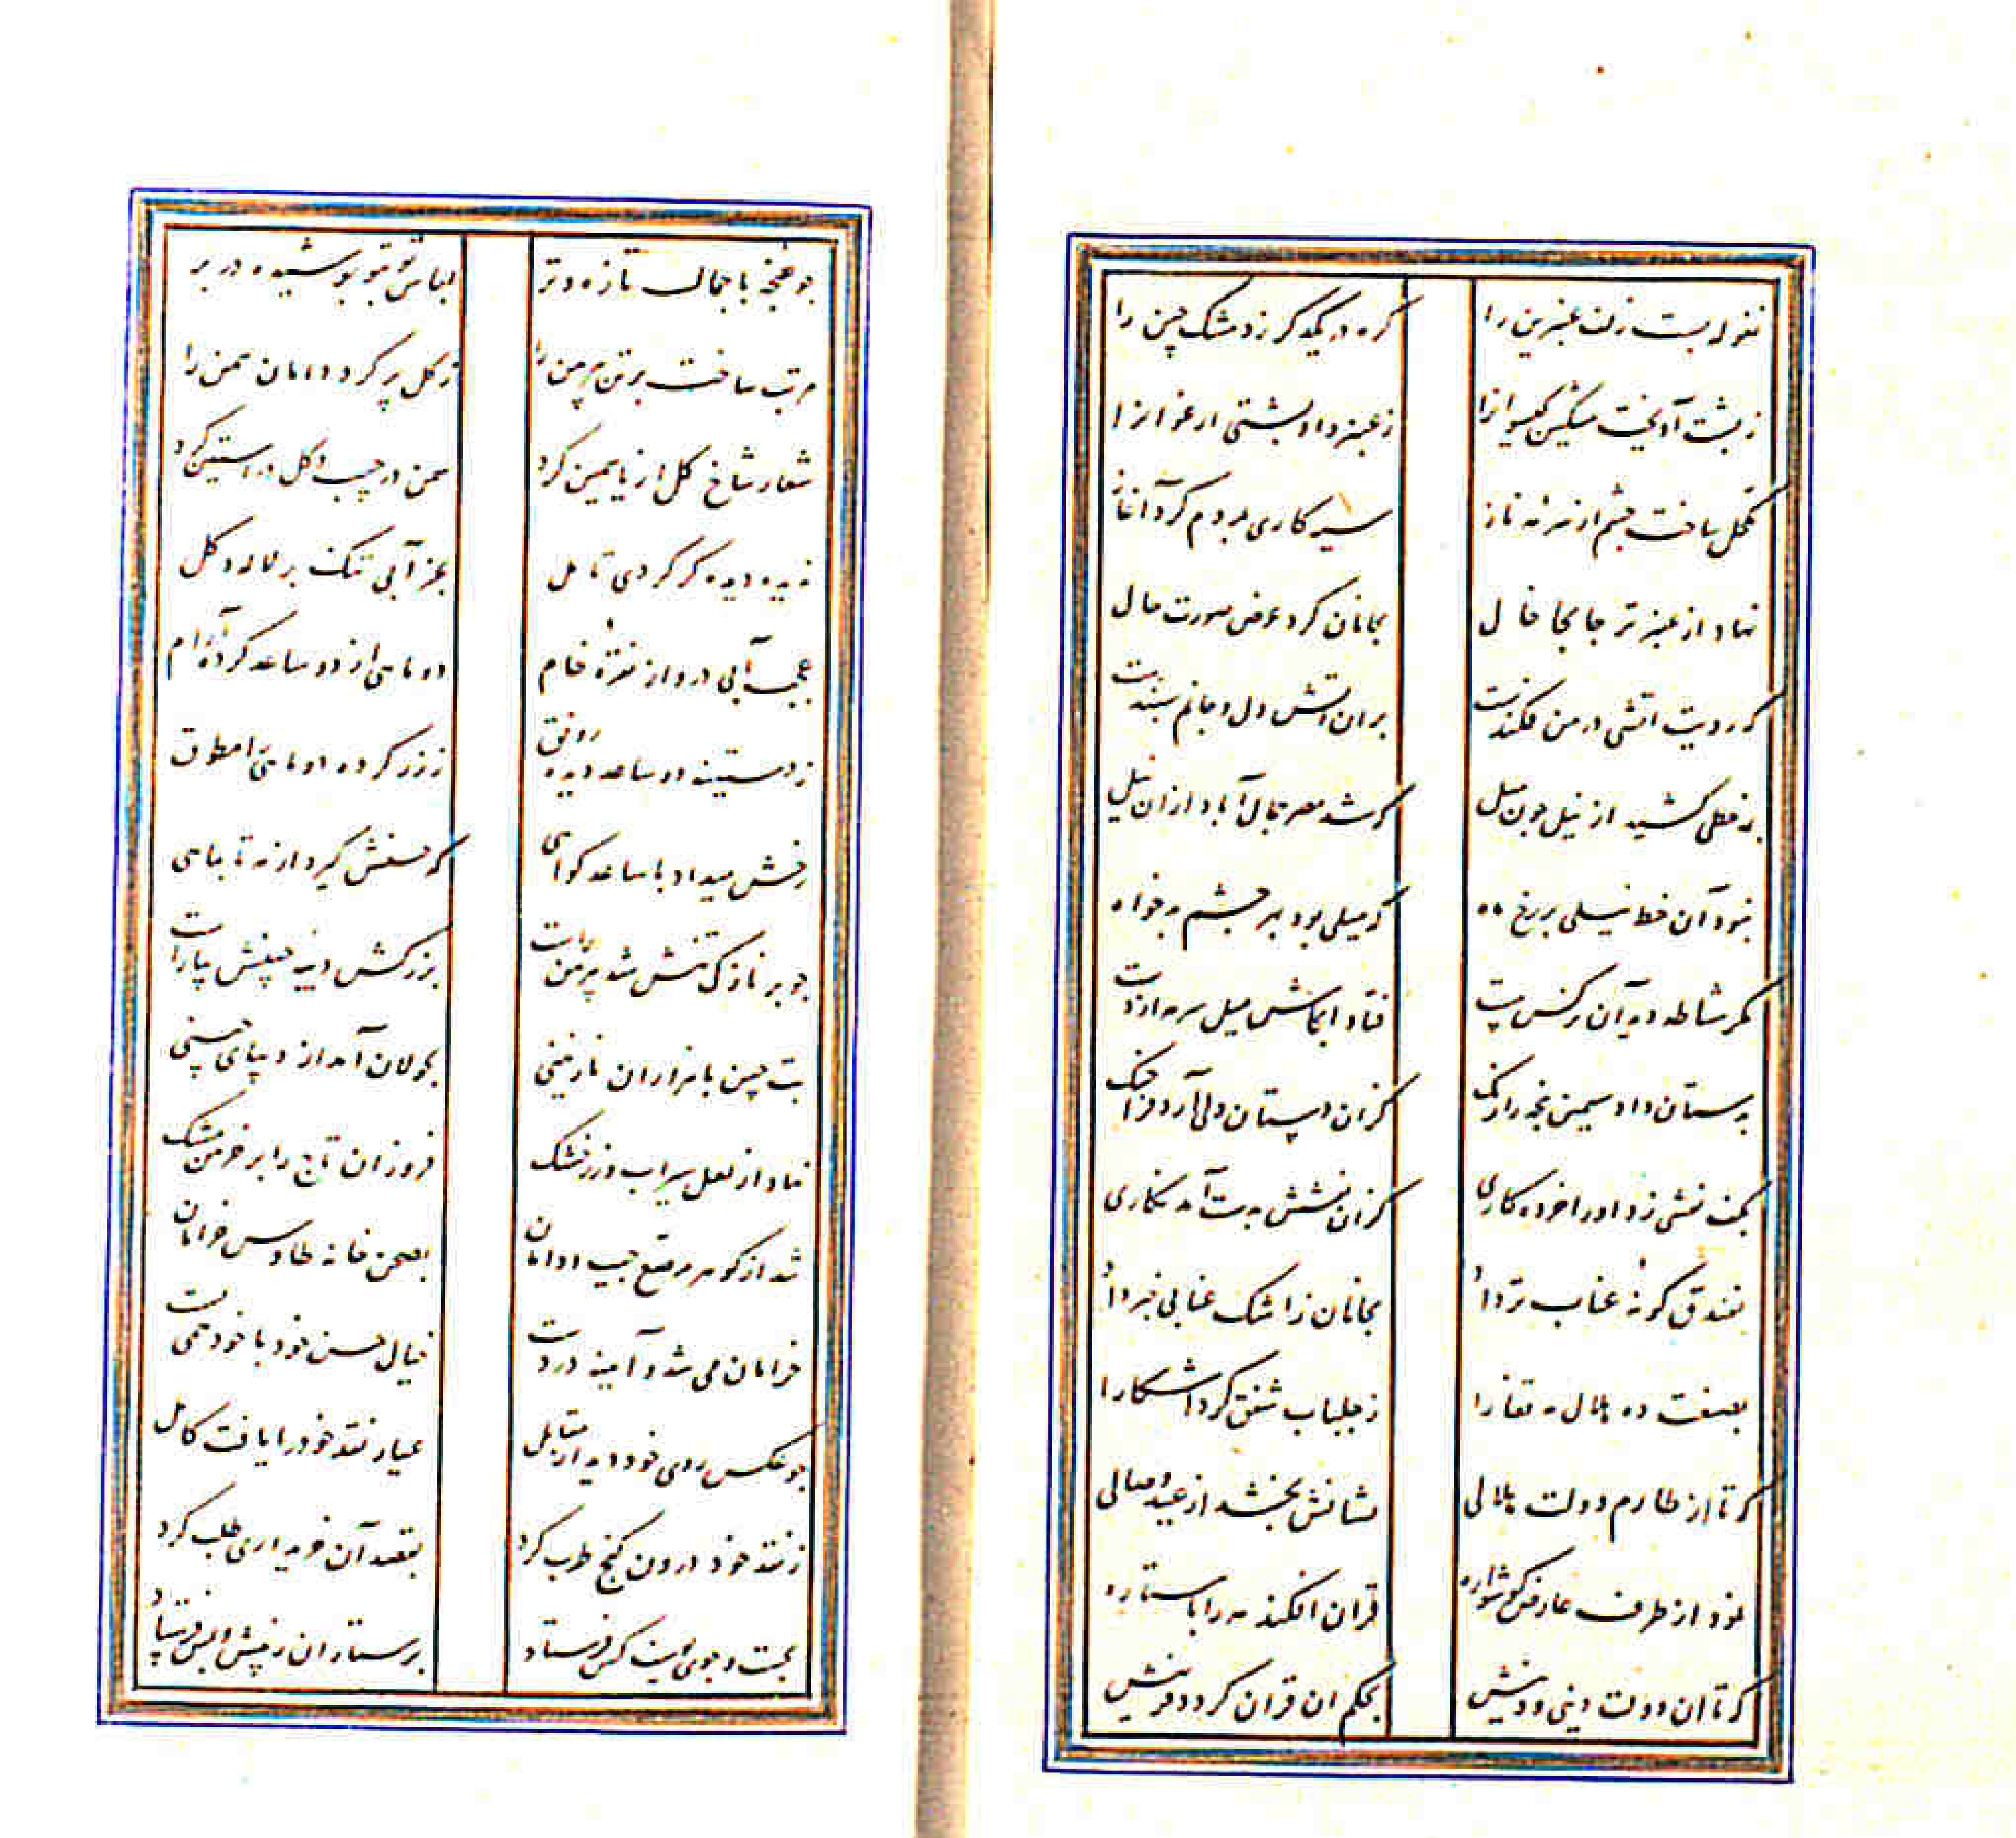 نغوله بست زلف عنبرین را گره در یکدگر زد مشک چین را
ز پشت آویخت مشکین گیسوانرا ز عنبر داد پشتی ارغوانرا
مکحل ساخت چشم از سرمه ناز سیه کاری بمردم کرد آغاز
نهاد از عنبر تر جا بجا خال بجانان کرد عرض صورت حال
که رویت اتشی در من فکندست بران اتش دل و جانم سپندست
به خطی کشید از نیل چون میل که شد مصر جمال آباد ازان نیل
نبود آن خط نیلی بر رخ ماه که میلی بود بهر چشم بدخواه
مگر مشاطه دید آن نرگس مست فتاد انجاش میل سرمه از دست
بدستان داد سیمین پنجه را رنگ کزان دستان دلی آرد فرا چنگ
بکف نقشی زد او را خرده کاری کزان نقشش بدست آمد نگاری
بفندق گونه عناب تر داد بجانان ز اشک عنابی خبر داد
بصنعت ده هلال مه لقا را ز جلباب شفق کرد اشکارا
که تا از طارم دولت هلالی مشانش بخشد از عید وصالی
نمود از طرف عارض گوشواره قران افکند مه را با ستاره
که تا ان دولت دینی و دینش بحکم ان قران گردد قرینش
جو غنجه با جمال تازه و تر لباس تو بتو پوشیده در بر
مرتب ساخت بر تن پیرهن را ز گل پر کرد دامان سمن را
شعار شاخ گل از یاسمین کرد سمن در جیب و گل در استین کرد
ندیده دیده گر کردی تامل بجز آبی تنک بر لاله و گل
عجب آبی درو از نقره خام دو ماهی از دو ساعد کرده آرام
ز دستینه دو ساعد دیده رونق ز زر کرده دو ماهی را مطوق
رخش میداد با ساعد گواهی که حسنش گیرد از مه تا بماهی
جو بر نازک تنش شد پیرهن راست بزرکش دیبه چینش بیاراست
بت چین با هزاران نازنینی بجولان آمد از دیبای چینی
نهاد از لعل سیراب و زر خشک فروزان تاج را بر خرمن مشک
شد از گوهر مرصع جیب و دامان بصحن خانه طاوس خرامان
خرامان می شد و آیینه در دست خیال حسن خود با خود همی بست
جو عکس روی خود دید از مقابل عیار نقد خود را یافت کامل
ز نقد خود درون گنج طرب کرد بقصد آن خریداری طلب کرد
بجست و جوی یوسف کس فرستاد پرستاران ز پیش و پس فرستاد